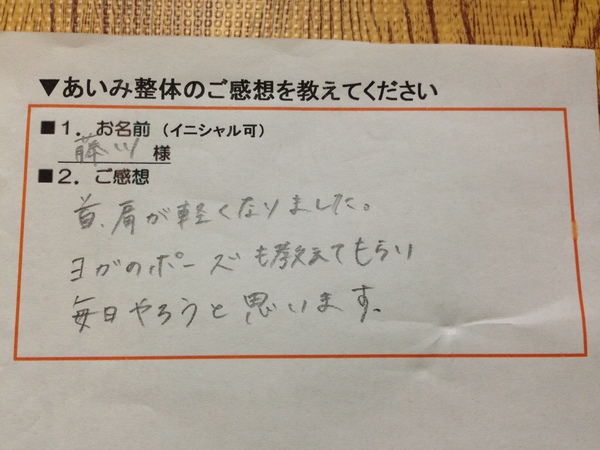 ▼あいみ整体のご感想を教えてください
■1．お名前（イニシャル可）
藤川 様
■2．ご感想
首、肩が軽くなりました。
ヨガのポーズも教えてもらい
毎日やろうと思います。